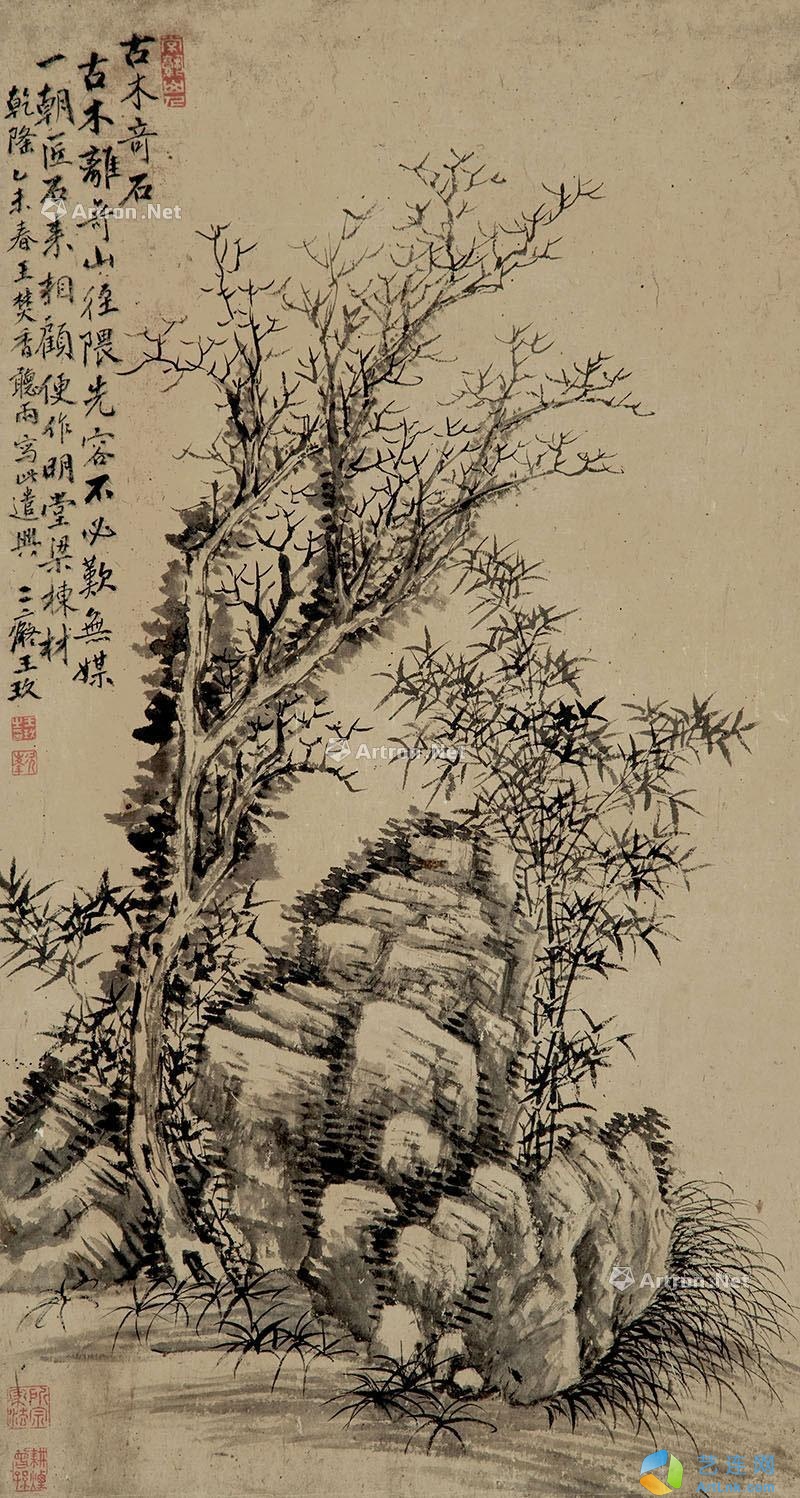 古木奇石
古木離奇山徑隈先容不必歎無媒
一朝匠石來相顧便作明堂梁棟材
乾隆乙未春王焚香聽雨寫此遣興 二癡王玖
所宗東法
耕煙曾孫
Artron.Net
Artron.Net
Artron.Net
艺连网